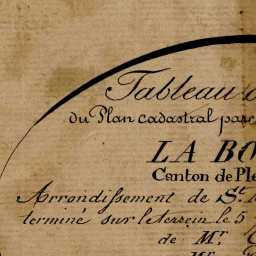 Tableau
du Plan cadastral parc
LA BO
Canton de Ple
Arrondissement de St.
terminé sur le terrein le 5
de Mr.
Mr.